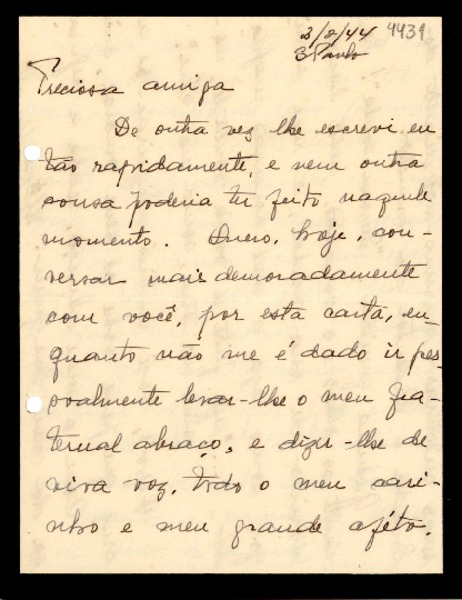 3/2/44 4439
S Paulo
Preciosa amiga
De outra vez lhe escrevi eu
tão rapidamente, e nem outra
cousa poderia ter feito naquele
momento. Quero, hoje, con-
versar mais demoradamente
com você, por esta carta, en-
quanto não me é dado ir pes-
soalmente levar-lhe o meu fra-
ternal abraço, e dizer-lhe de
viva voz, todo o meu cari-
nho e meu grande aféto.